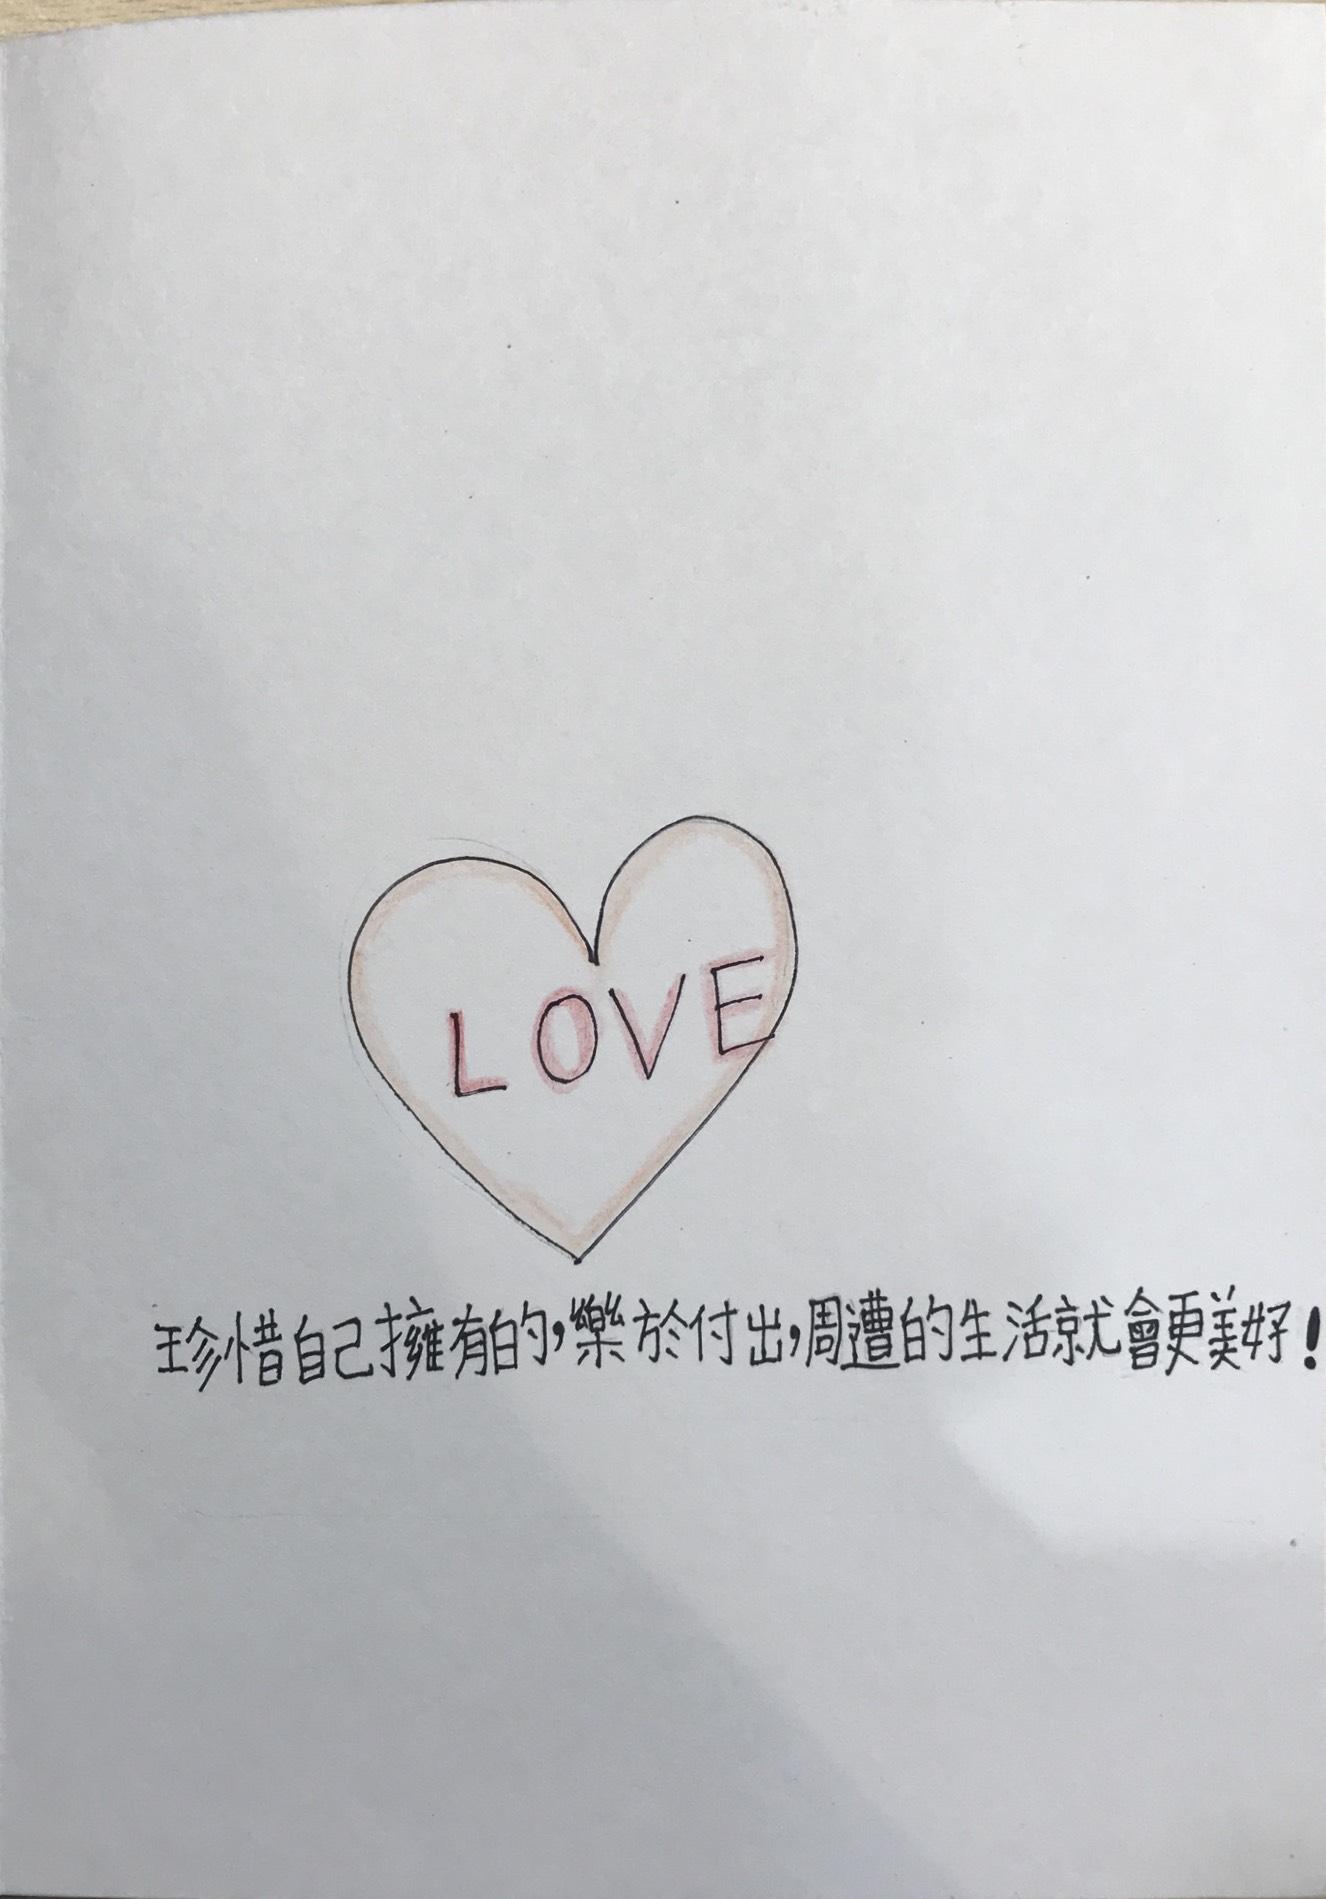 LOVE
珍惜自己擁有的,樂於付出,周遭的生活就會更美好!